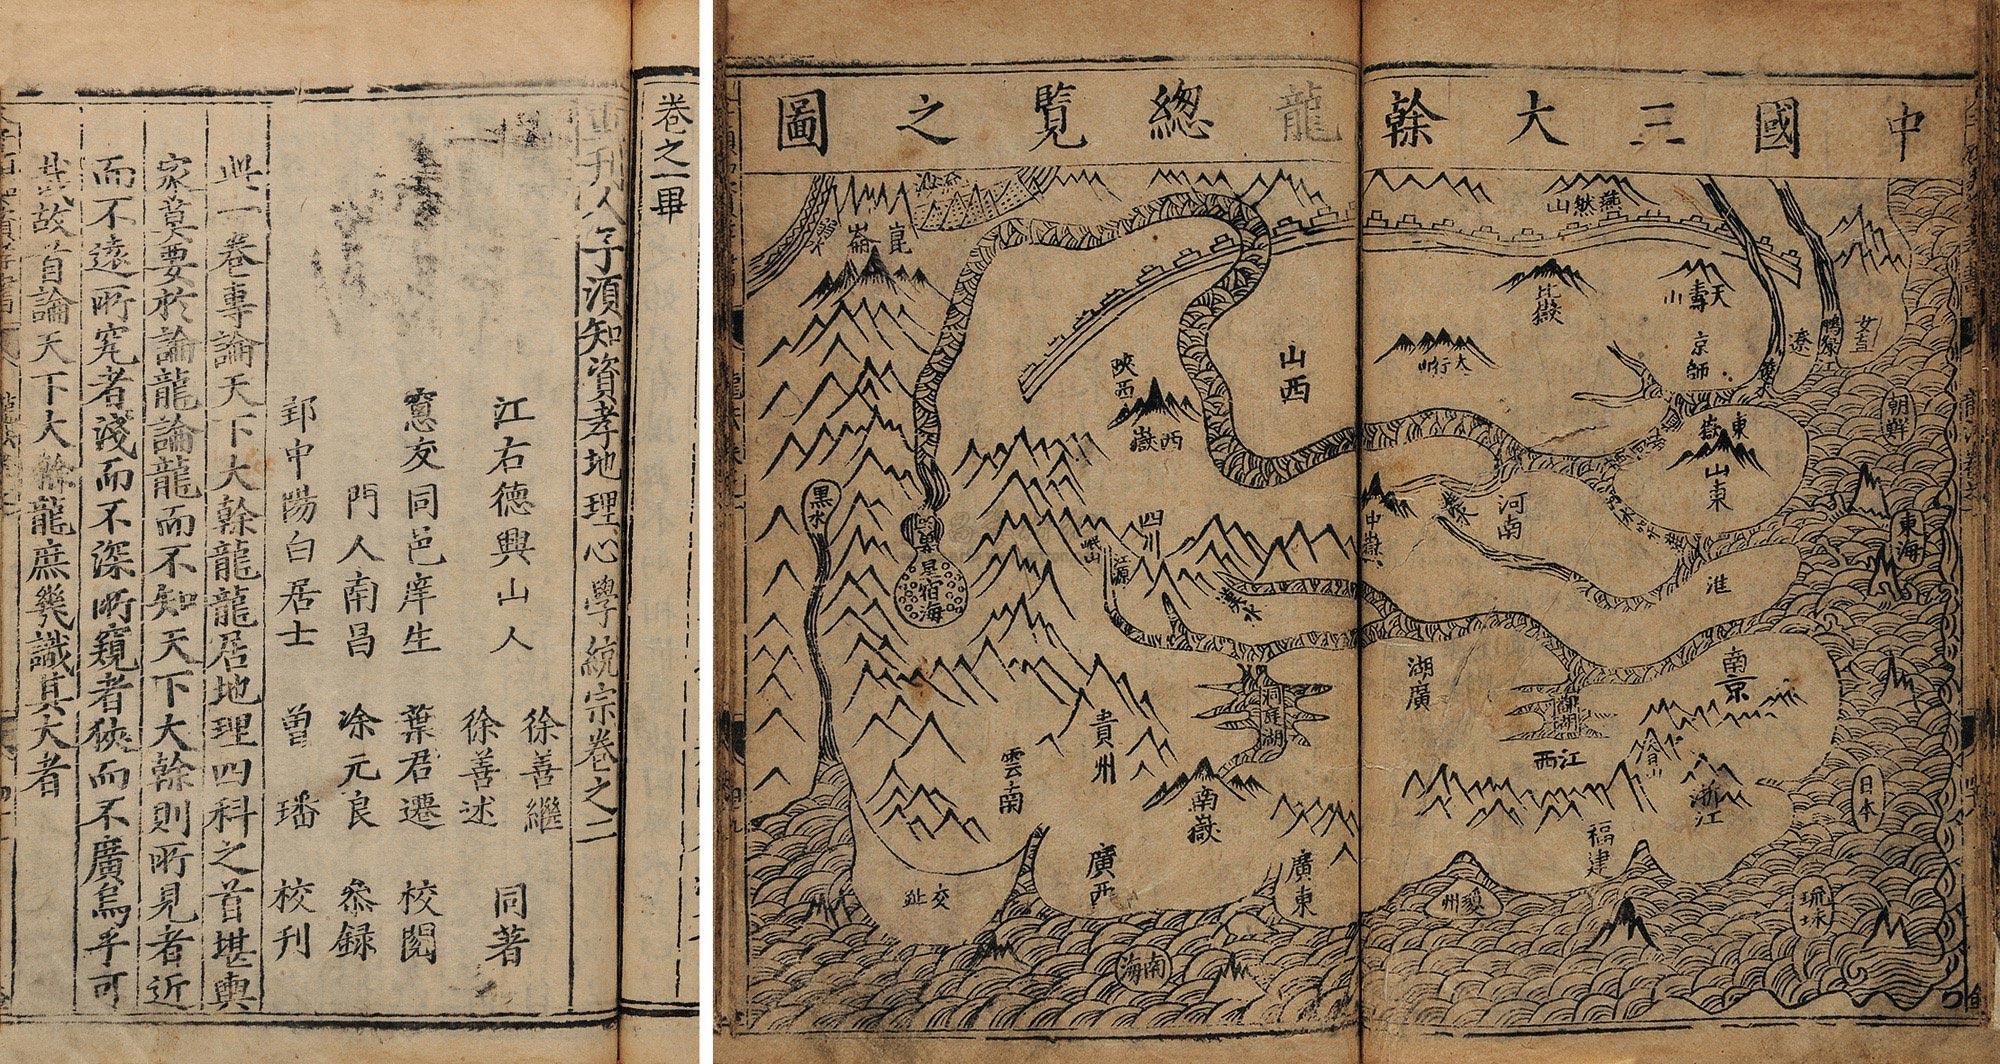 卷之一畢
刊人子須知資孝地理心學統宗卷之二
江右德興山人
徐善繼
徐善述
同著
窓友同邑庠生
葉君遷
校閱
門人南昌
涂元良
叅録
郢中陽白居士
曾璠
校刊
此一卷專論天下大幹龍龍居地理四科之首堪輿
家莫要於論龍論龍而不知天下大幹則所見者近
而不遠所究者淺而不深所窺者狹而不廣烏乎可
哉故首論天下大幹龍庶幾識其大者
中國三大幹龍總覽之圖
燕然山
崑崙
北嶽
天壽山
京師
遼
鴨綠江
女直
朝鮮
太行山
山西
陝西
西嶽
東嶽
山東
黑水
星宿海
四川
岷山
江源
漢水
中嶽
河南
淮
東海
湖廣
南京
洞庭湖
江西
浙江
日本
貴州
雲南
南嶽
福建
廣西
廣東
交趾
琉球
南海